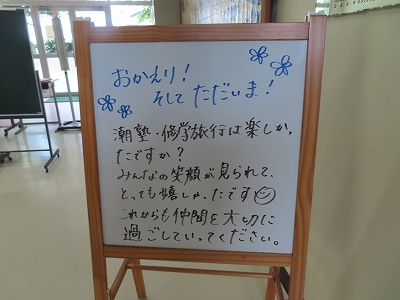 おかえり!
そして ただいま!
潮塾・修学旅行は楽しかっ
たですか?
みんなの笑顔が見られて、
とっても嬉しかったです
これからも仲間を大切に
過ごしていってください。